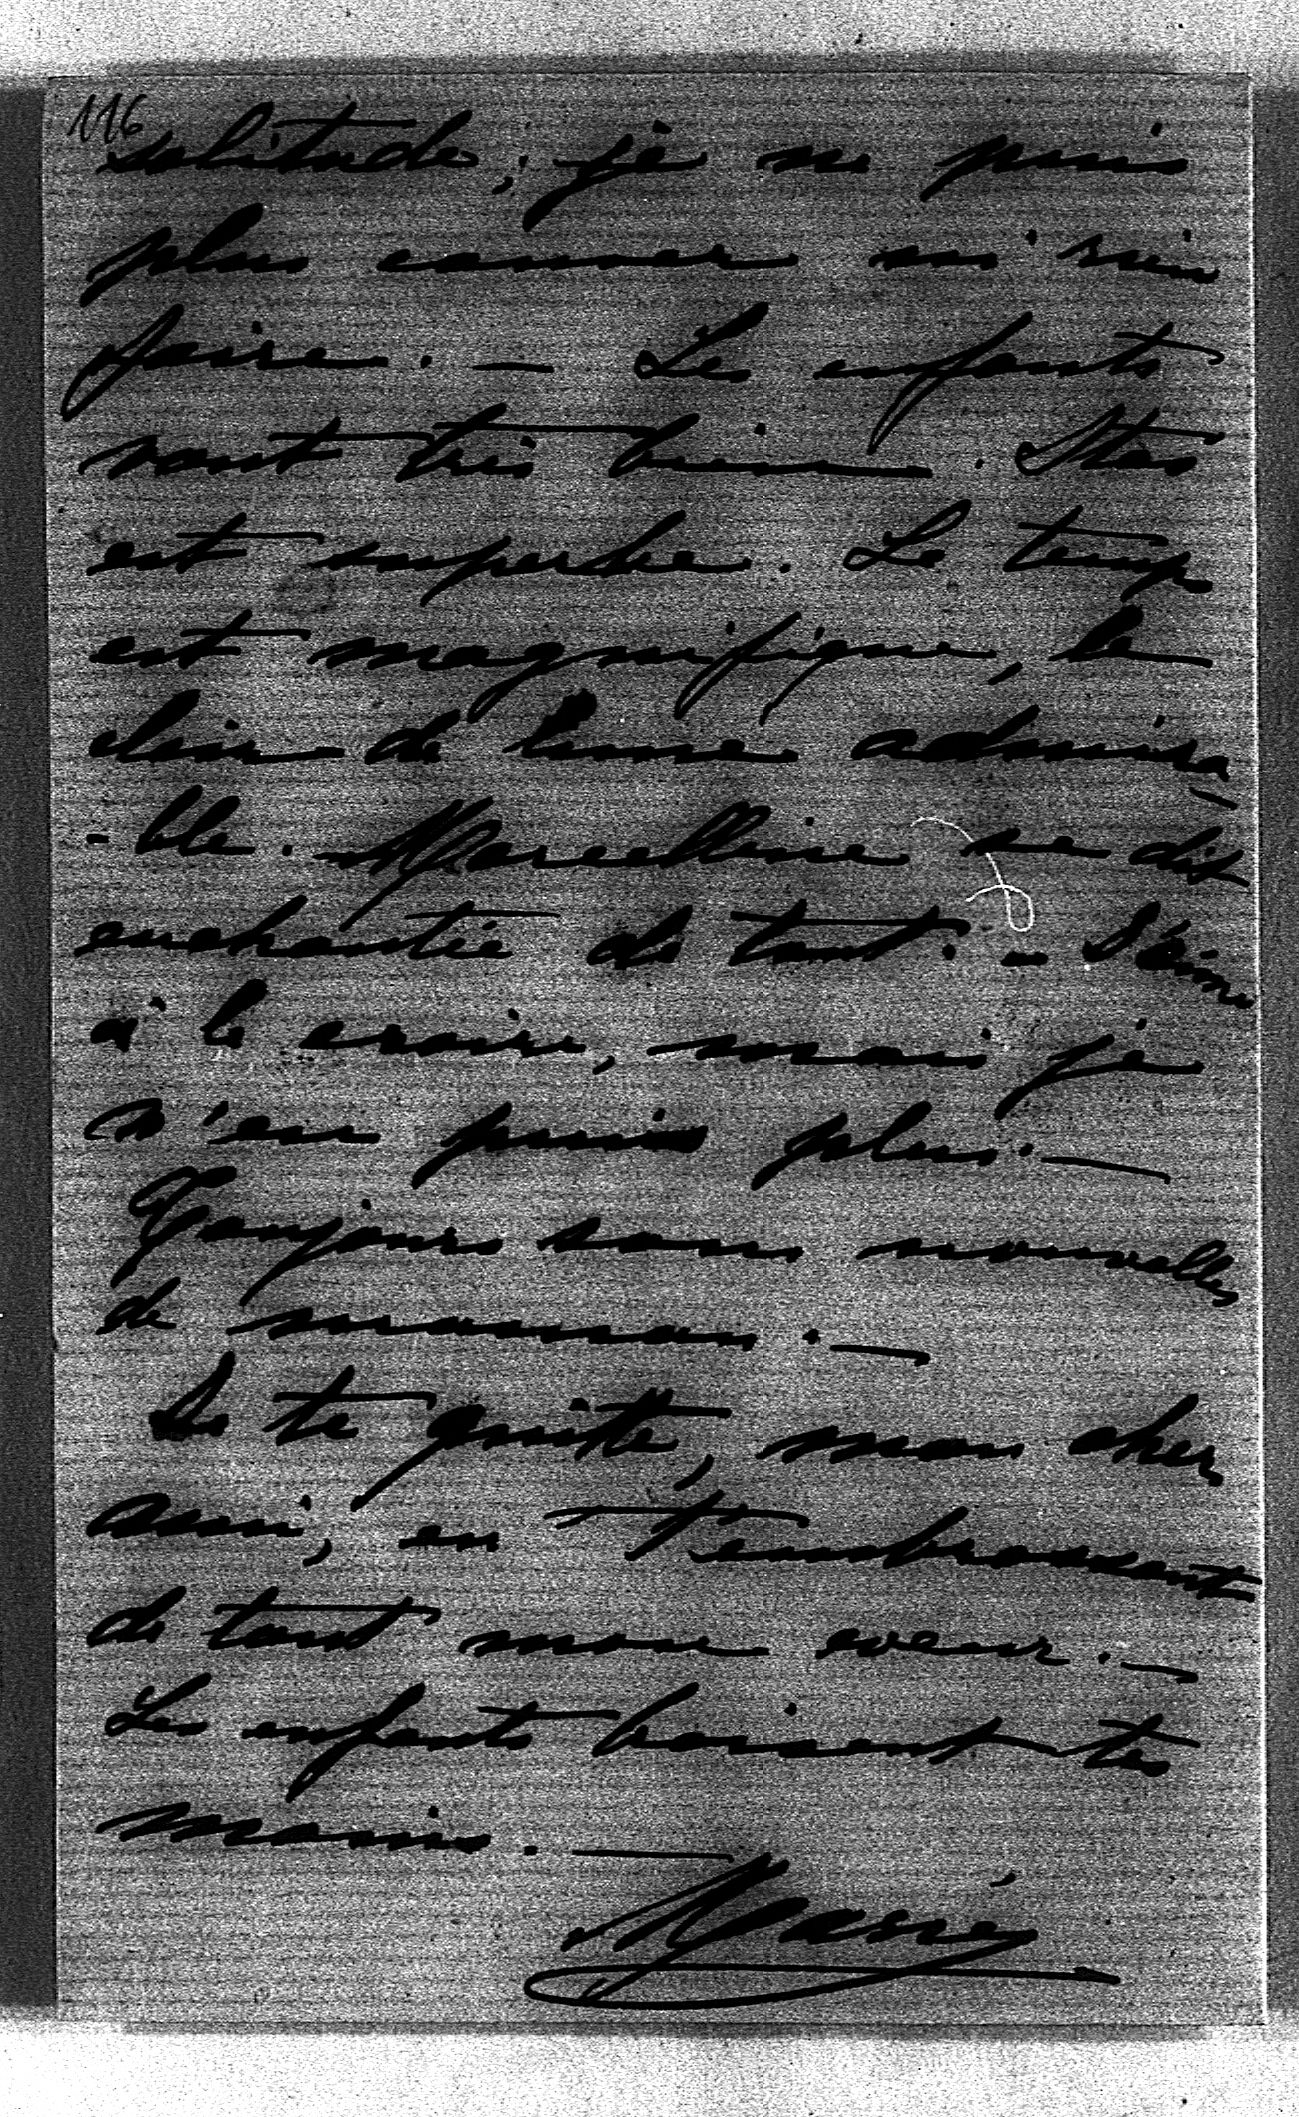 116
solitude; je ne puis
plus causer ni rien
faire. — Les enfants
vont très bien. Stas
est superbe. Le temps
est magnifique, le
clair de lune admira
-ble. Marcelline se dit
enchantée de tout. — J'aime
à le croire, mais je
n'en puis plus. —
Toujours sans nouvelles
de maman. —
Je te quitte, mon cher
ami, en t'embrassant
de tout mon coeur. —
Les enfants baisent tes
mains. —
Marie